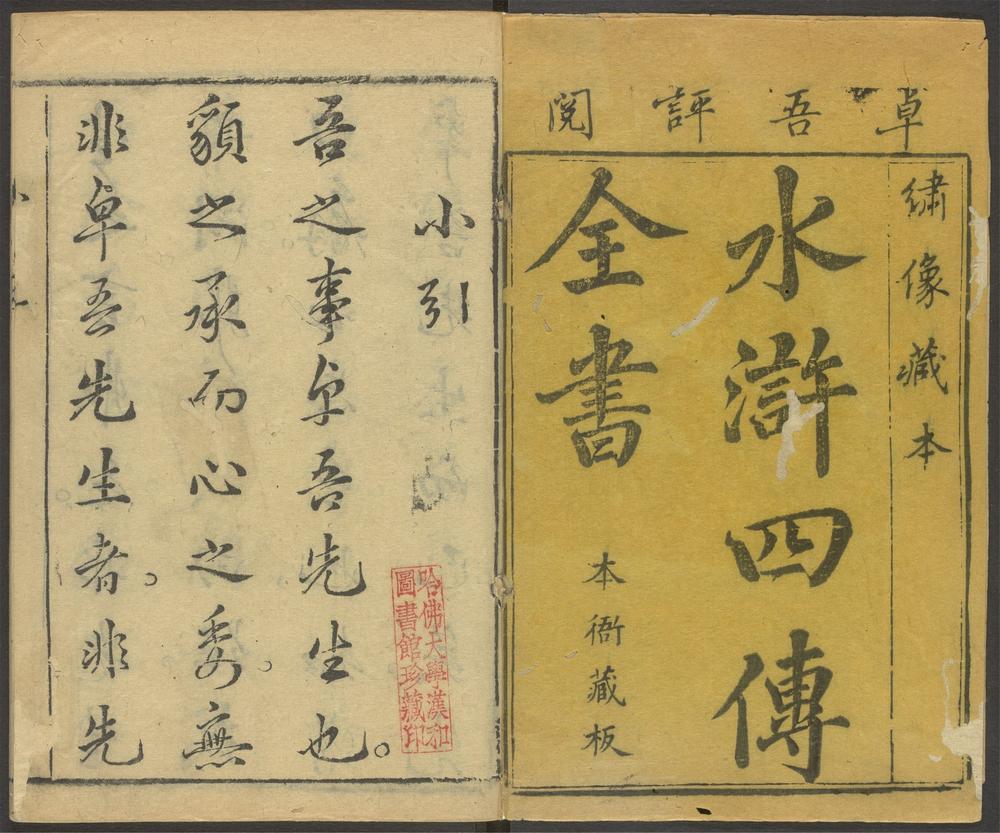 卓吾評閱
繡像藏本
水滸四傳
全書
本衙藏板
小引
吾之事卓吾先生也。
䫉之承而心之委。無
非卓吾先生者。非非先
哈佛大學漢和
圖書館珍藏印